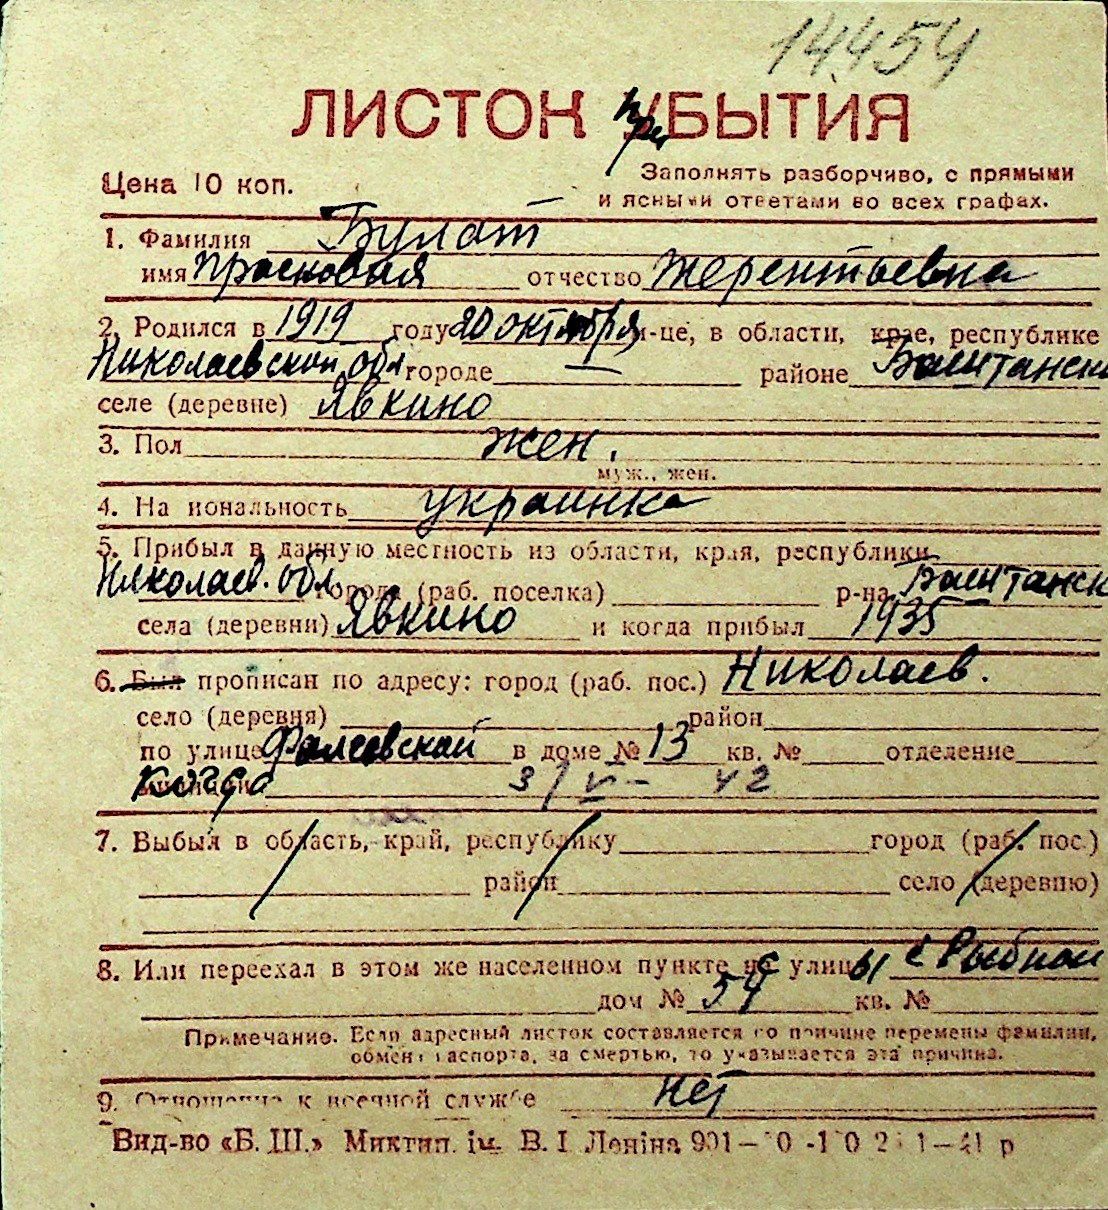 14454
ЛИСТОК УБЫТИЯ
при
Цена 10 коп.
Заполнять разборчиво, с прямыми
и ясными ответами во всех графах.
1. Фамилия Булат
имя Прасковия отчество Терентьевна
2. Родился в 1919 году 20 октября м-це, в области, крае, республике
Николаевской обл. городе — районе Баштанск
селе (деревне) Явкино
3. Пол жен.
муж., жен.
4. Национальность украинка
5. Прибыл в данную местность из области, края, республики
Николаев. обл. города (раб. поселка) р-на Баштанск
села (деревни) Явкино и когда прибыл 1935
6. Был прописан по адресу: город (раб. пос.) Николаев.
село (деревня) район
по улице Фалеевской в доме № 13 кв. № отделение
когда 3/V - 42
7. Выбыл в область, край, республику город (раб. пос.)
район село (деревню)
8. Или переехал в этом же населенном пункте с улицы с Рыбной
дом № 54 кв. №
Примечание. Если адресный листок составляется по причине перемены фамилии,
обмена паспорта, за смертью, то указывается эта причина.
9. Отношение к военной службе нет
Вид-во «Б. Ш.» Миктип. ім. В. І Леніна 901